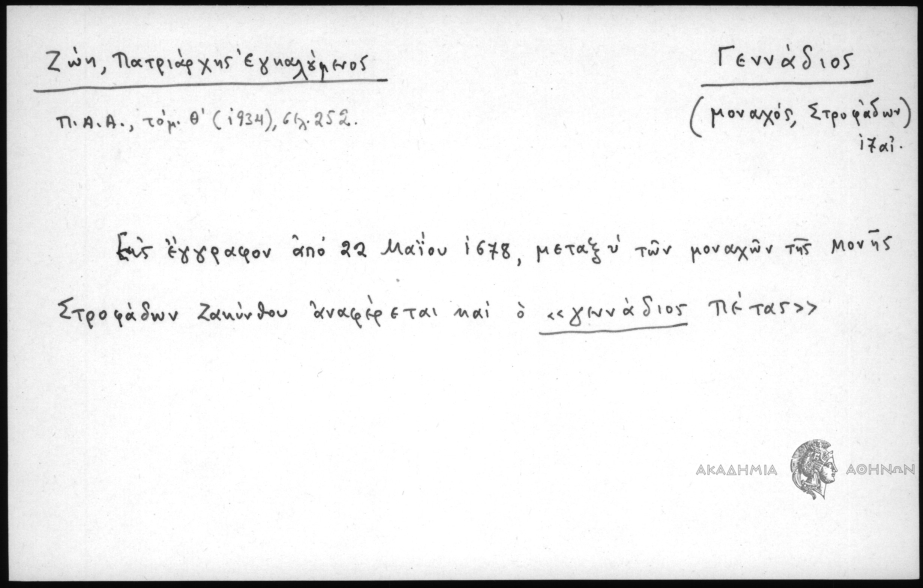 Ζώη, Πατριάρχης ἐγκαλούμενος
Π.Α.Α., τόμ. Θ' (1934), σελ. 252.
Γεννάδιος
(μοναχός, Στροφάδων)
17 αἰ.
Εἰς ἔγγραφον ἀπό 22 Μαΐου 1678, μεταξύ τῶν μοναχῶν τῆς Μονῆς
Στροφάδων Ζακύνθου ἀναφέρεται καί ὁ «γεννάδιος Πέτας»
ΑΚΑΔΗΜΙΑ ΑΘΗΝΩΝ